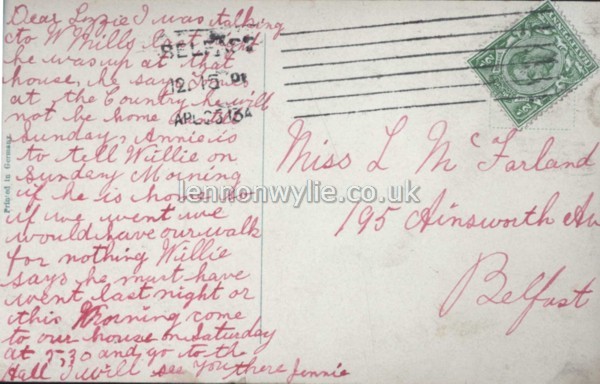 Dear Lizzie I was talking
to W Mills last night
he was up at that
house, he says
at the Country he will
not be home
Sunday, Annie is
to tell Willie on
Sunday Morning
if he is home
if we went we
would have our walk
for nothing Willie
says he must have
went last night or
this Morning come
to our house on Saturday
at 5,30 and go to the
Hall I will see you there Jennie
Printed in Germany
BELFAST
12.15 PM
APL 25 13
Miss L McFarland
195 Ainsworth Av
Belfast
lennonwylie.co.uk